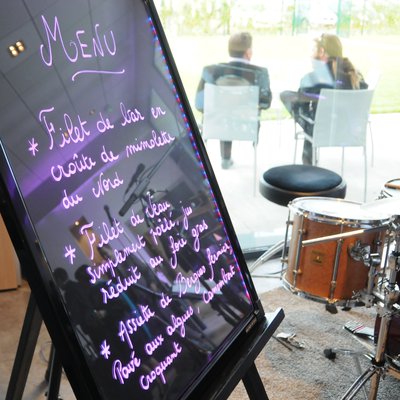 MENU
* Filet de bar en
croûte de mimolette
du Nord
* Filet de veau
simplement rôti, jus
réduit au foie gras
* Assiette de Bergues fermier,
Pavé aux algues,
Croquant